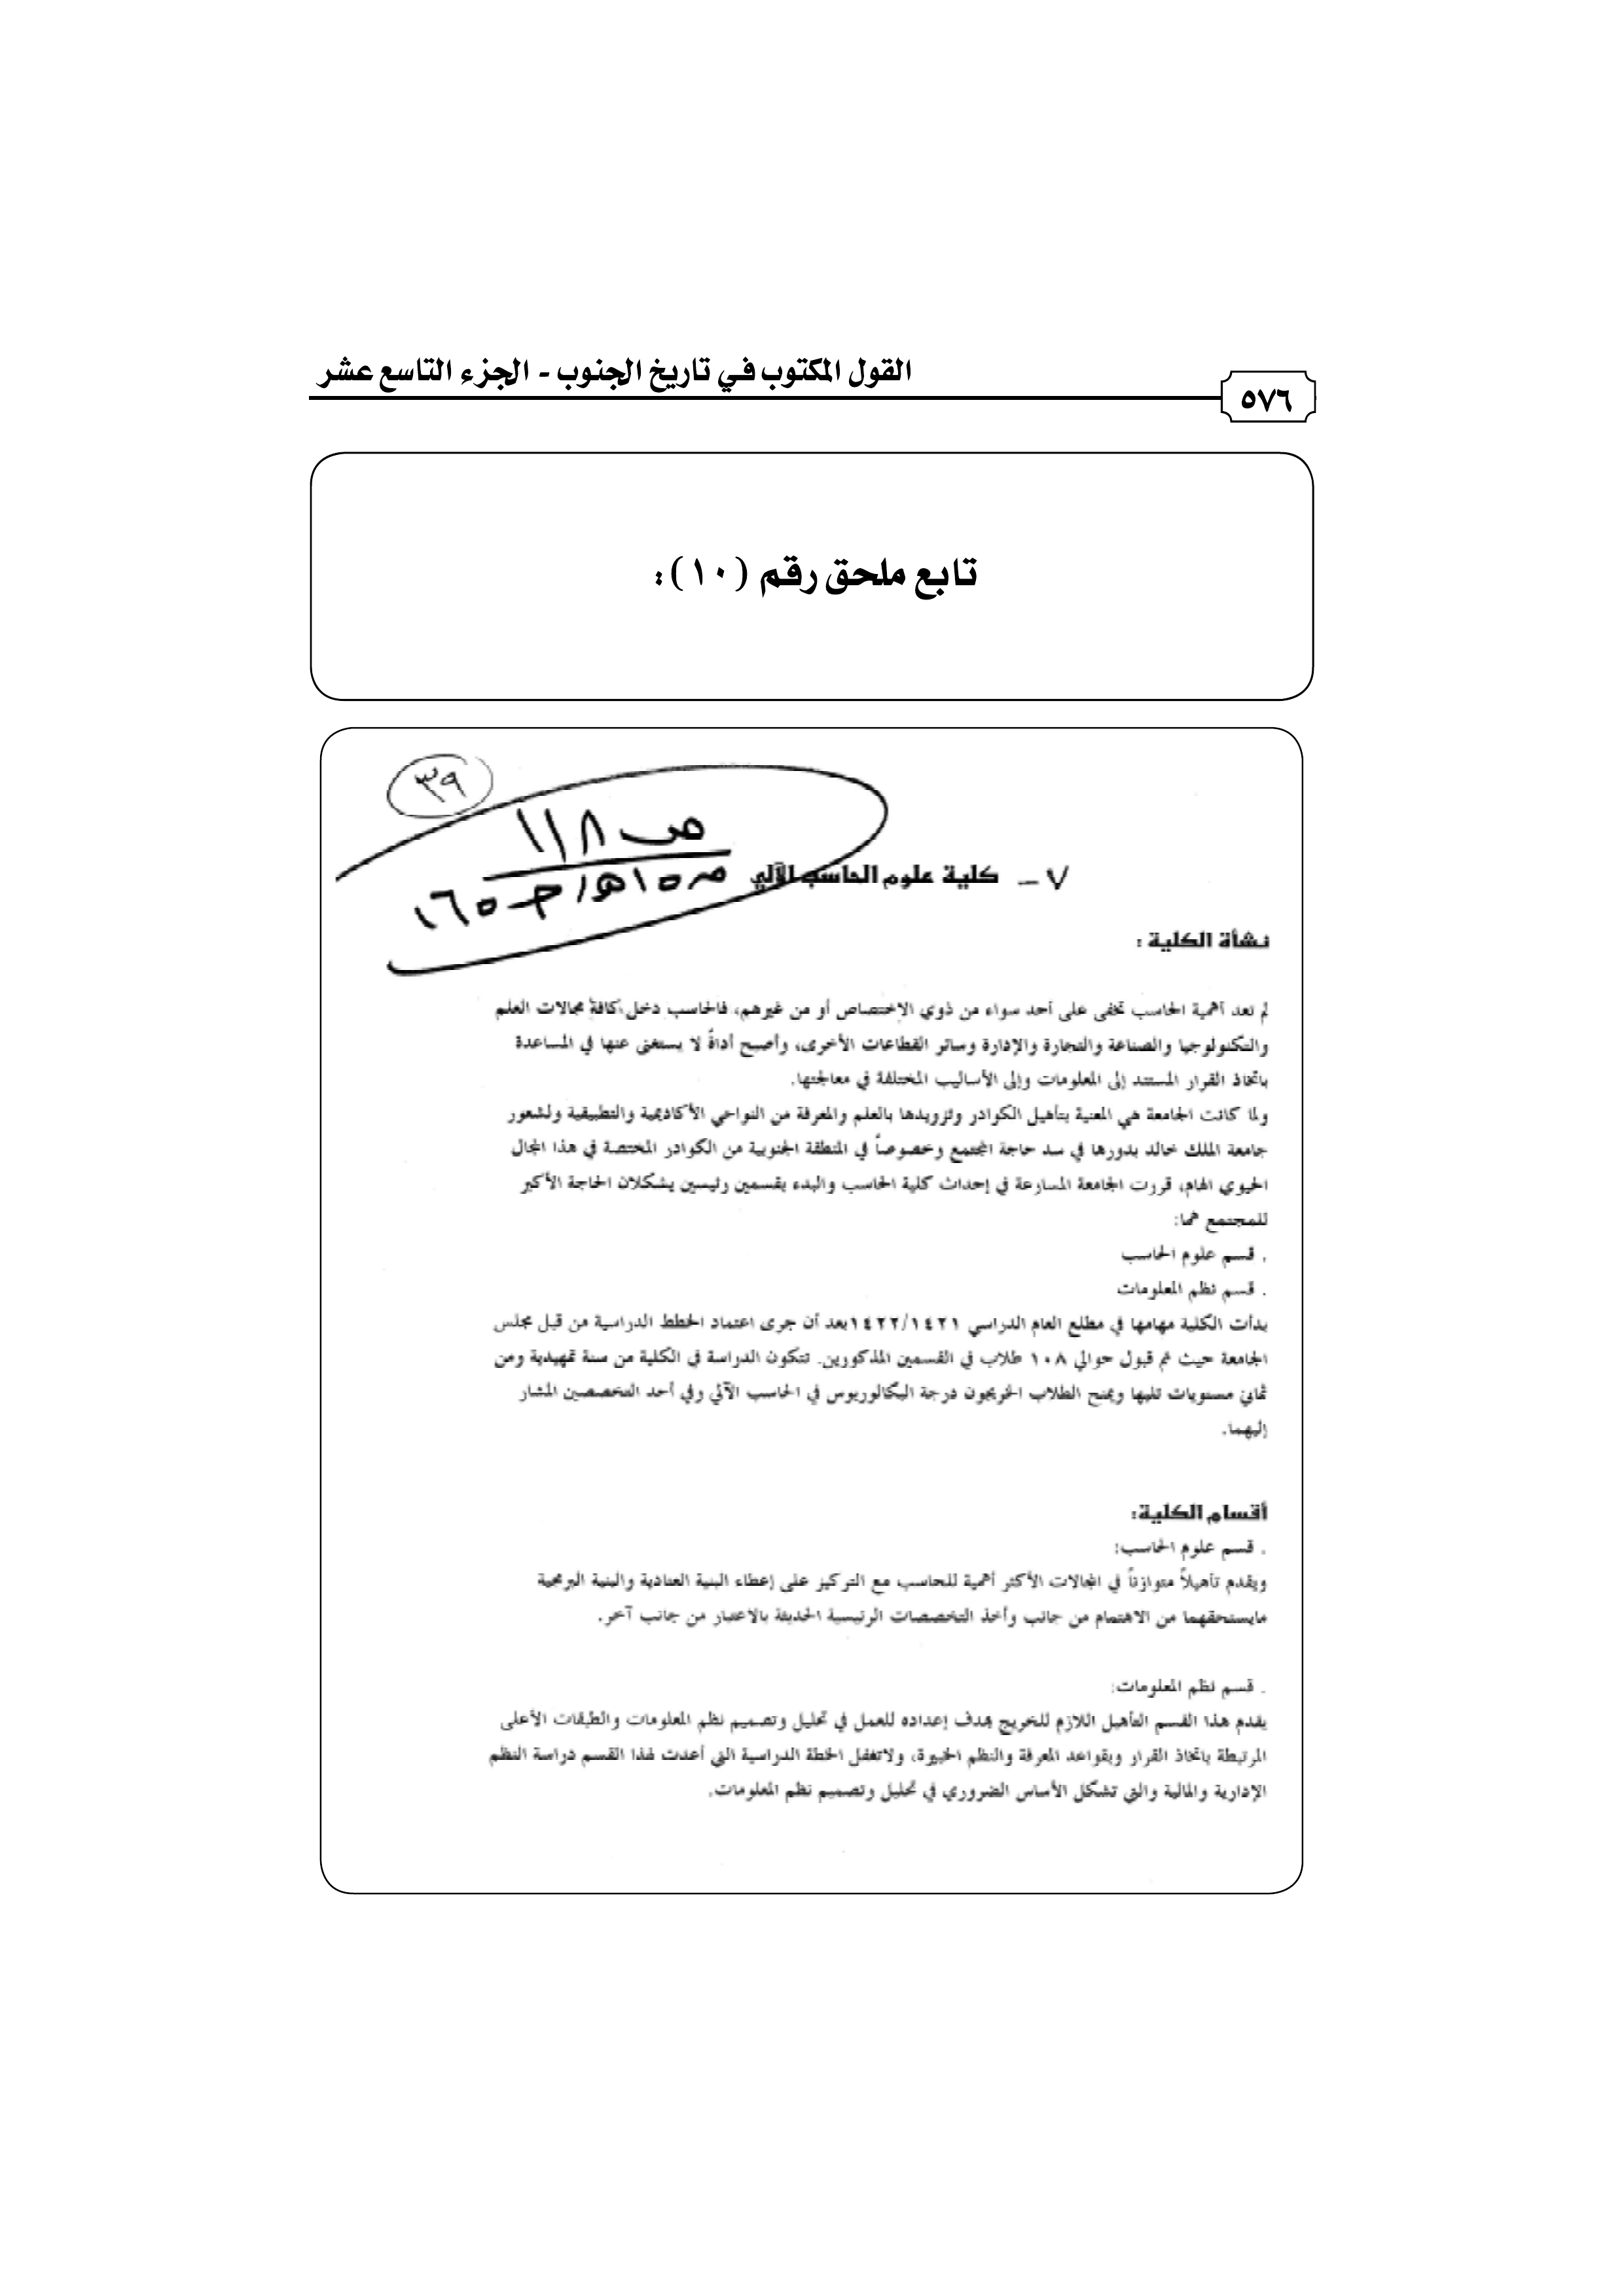 القول المكتوب في تاريخ الجنوب - الجزء التاسع عشر
٥٧٦
تابع ملحق رقم (١٠):
٣٩
ص ١١٨
٧ - كلية علوم الحاسب الآلي
نشأة الكلية :
لم تعد أهمية الحاسب تخفى على أحد سواء من ذوي الاختصاص أو من غيرهم، فالحاسب دخل كافة مجالات العلم
والتكنولوجيا والصناعة والتجارة والإدارة وسائر القطاعات الأخرى، وأصبح أداةً لا يستغنى عنها في المساعدة
باتخاذ القرار المستند إلى المعلومات وإلى الأساليب المختلفة في معالجتها.
ولما كانت الجامعة هي المعنية بتأهيل الكوادر وتزويدها بالعلم والمعرفة من النواحي الأكاديمية والتطبيقية ولشعور
جامعة الملك خالد بدورها في سد حاجة المجتمع وخصوصاً في المنطقة الجنوبية من الكوادر المختصة في هذا المجال
الحيوي الهام، قررت الجامعة المسارعة في إحداث كلية الحاسب والبدء بقسمين رئيسين يشكلان الحاجة الأكبر
للمجتمع هما:
. قسم علوم الحاسب
. قسم نظم المعلومات
بدأت الكلية مهامها في مطلع العام الدراسي ١٤٢٢/١٤٢١بعد أن جرى اعتماد الخطط الدراسية من قبل مجلس
الجامعة حيث تم قبول حوالي ١٠٨ طلاب في القسمين المذكورين. تتكون الدراسة في الكلية من سنة تمهيدية ومن
ثماني مستويات تليها ويمنح الطلاب الخريجون درجة البكالوريوس في الحاسب الآلي وفي أحد التخصصين المشار
إليهما.
أقسام الكلية:
. قسم علوم الحاسب:
ويقدم تأهيلاً متوازناً في المجالات الأكثر أهمية للحاسب مع التركيز على إعطاء البنية العتادية والبنية البرمجية
مايستحقهما من الاهتمام من جانب وأخذ التخصصات الرئيسية الحديثة بالاعتبار من جانب آخر.
. قسم نظم المعلومات:
يقدم هذا القسم التأهيل اللازم للخريج بهدف إعداده للعمل في تحليل وتصميم نظم المعلومات والطبقات الأعلى
المرتبطة باتخاذ القرار وبقواعد المعرفة والنظم الخبيرة، ولاتغفل الخطة الدراسية التي أعدت لهذا القسم دراسة النظم
الإدارية والمالية والتي تشكل الأساس الضروري في تحليل وتصميم نظم المعلومات.